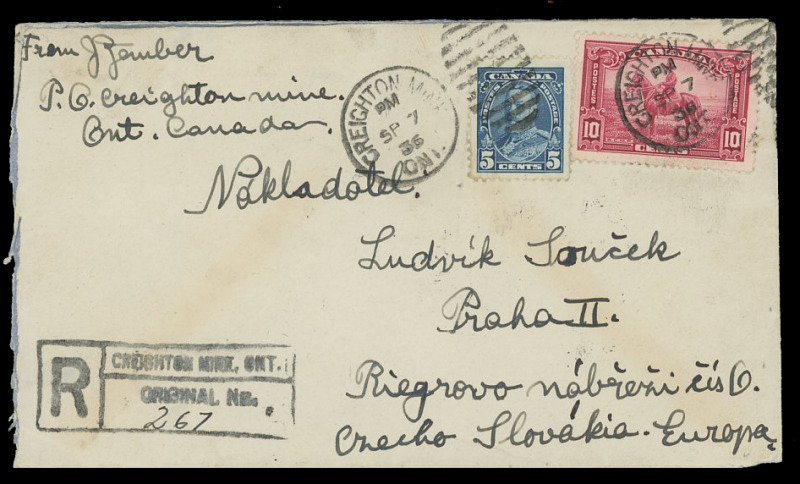 From J Zember
P.O. Creighton mine.
Ont. Canada.
CREIGHTON MINE
PM
SP 7
36
ONT.
CANADA
POSTES POSTAGE
5 5
CENTS
CREIGHTON MINE
PM
SP 7
36
ONT
POSTES POSTAGE
10 10
Nakladatel.
Ludvík Souček
Praha II.
Riegrovo nábřeži čís 6.
Czecho Slovákia. Europa
R
CREIGHTON MINE, ONT.
ORIGINAL No.
267